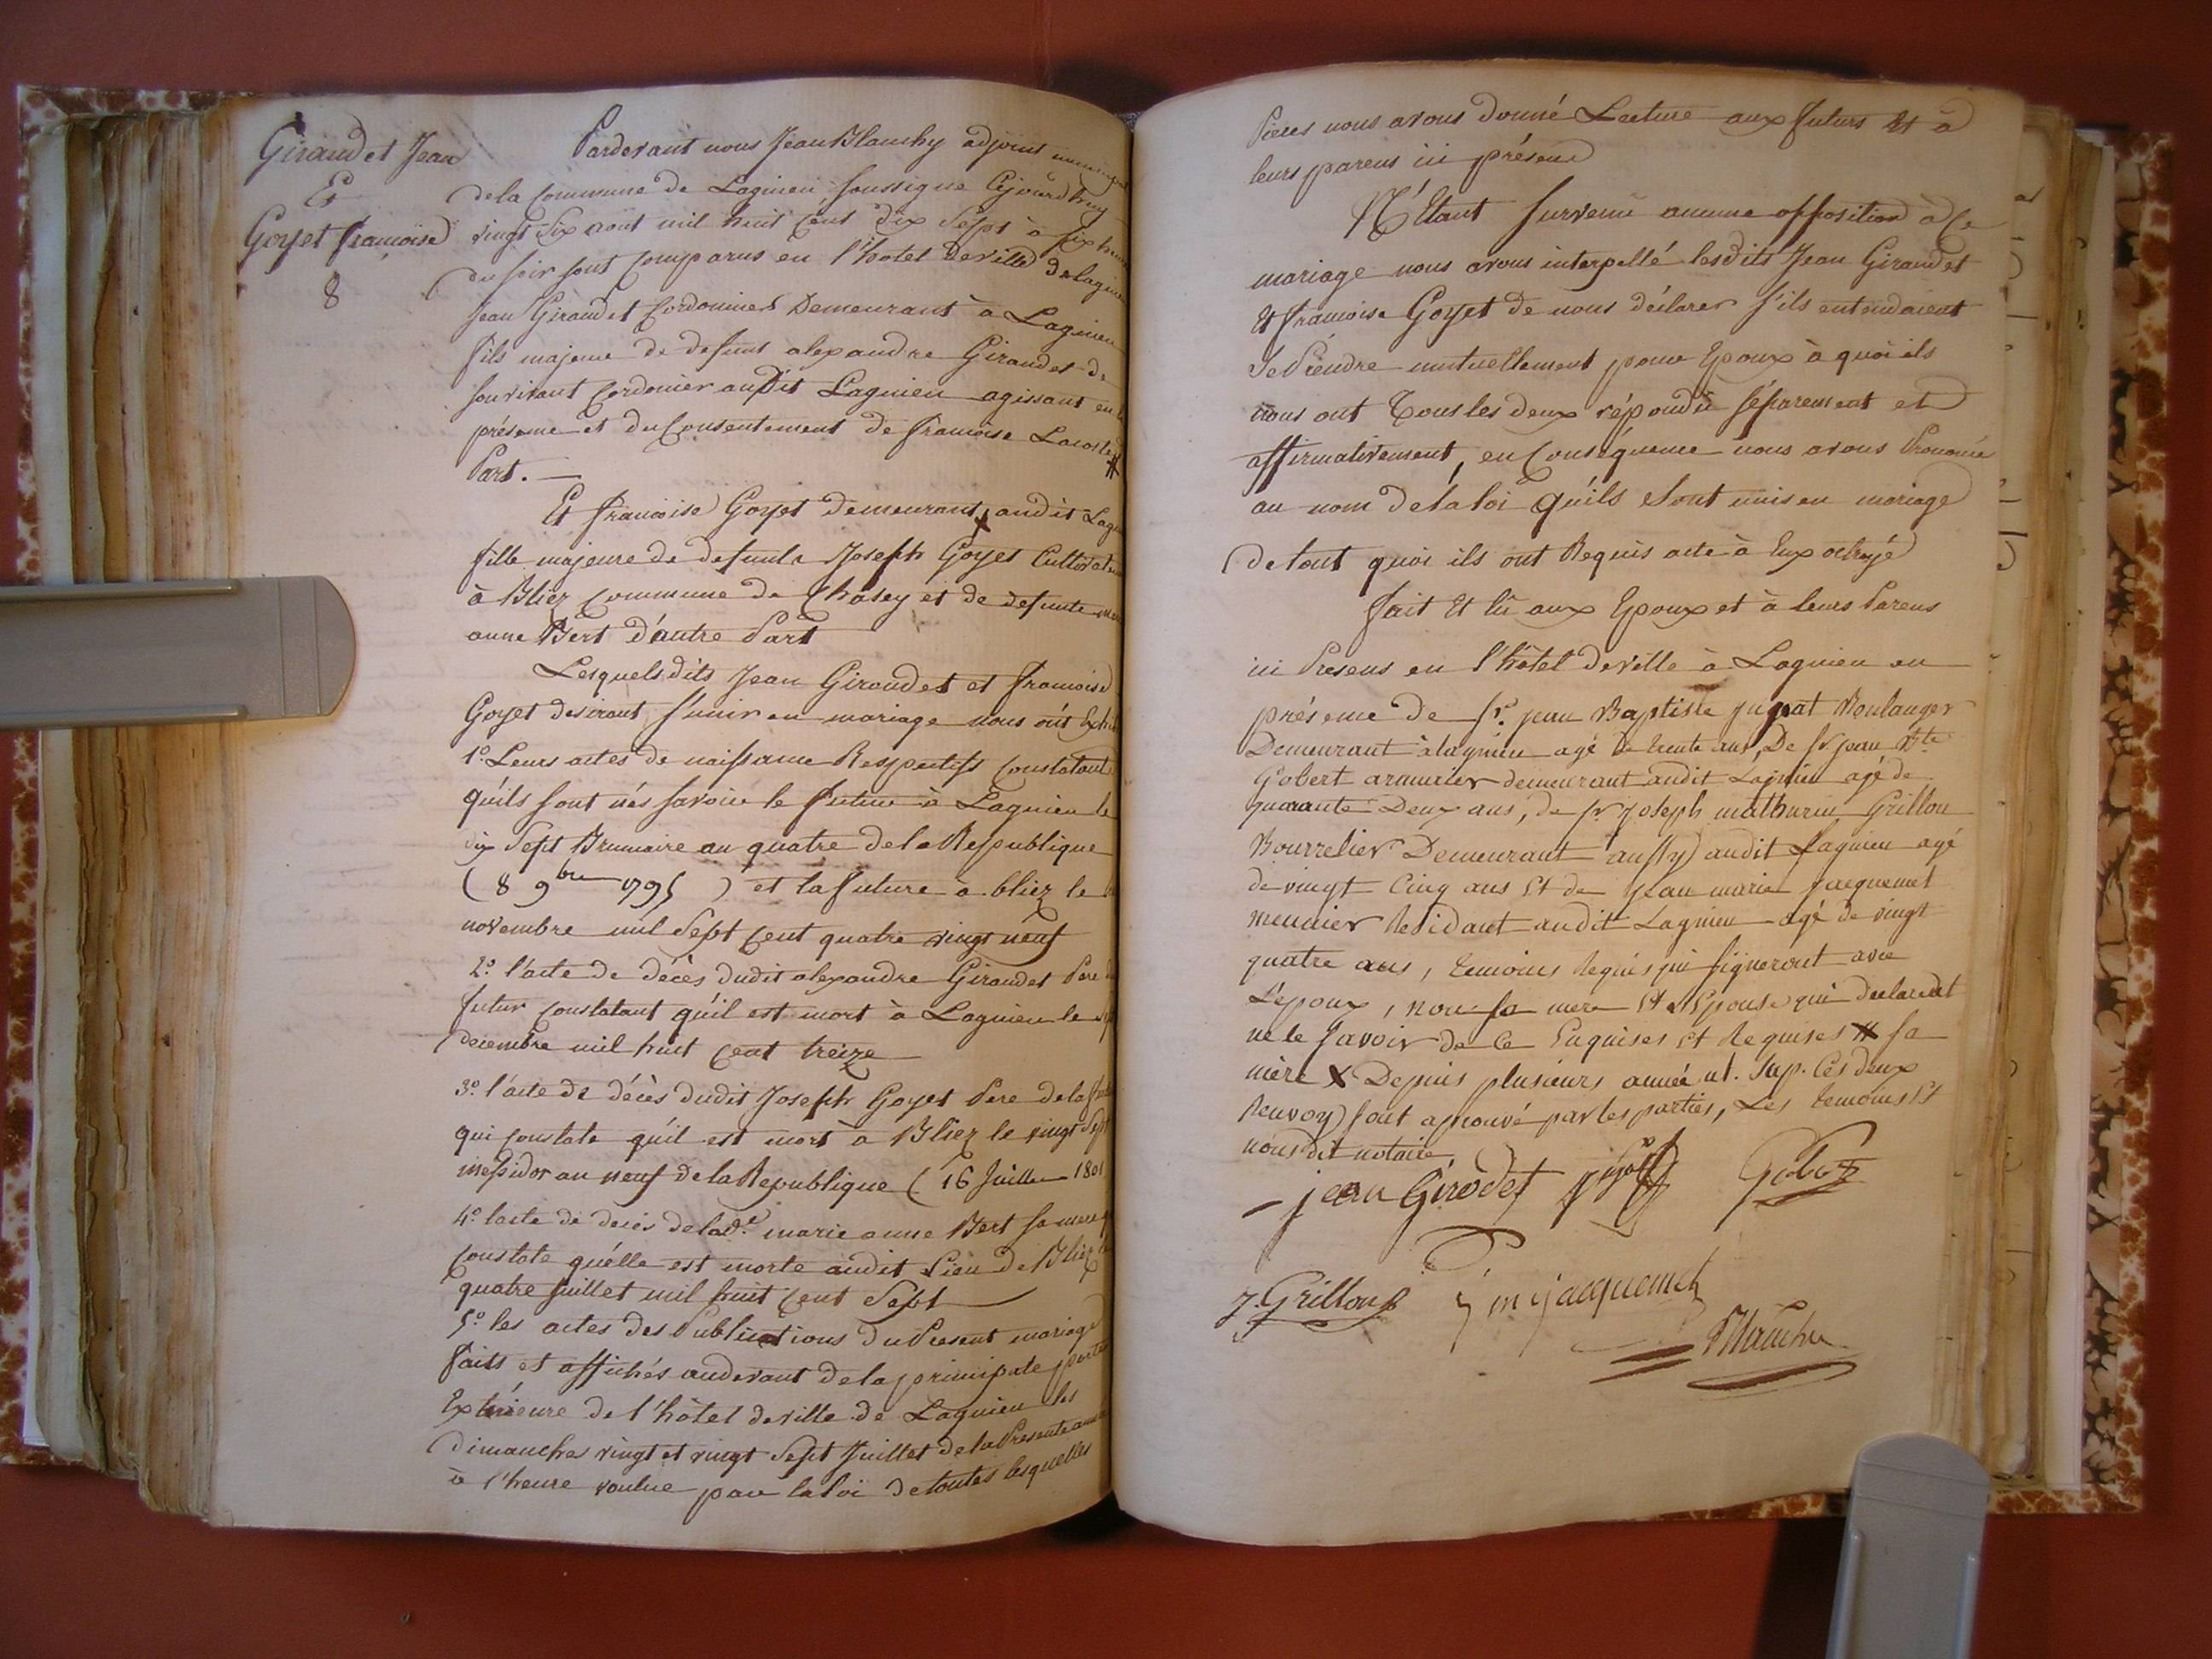 Giraudet Jean
Et
Goyet francoise
8
Pardevant nous Jean Blanchy adjoint
dela Commune de Lagnieu soussigné Cejourdhuy
vingt Six aout mil huit Cent dix Sept à six heures
du soir sont Comparus en l'hotel deville de Lagnieu
Jean Giraudet Cordonnier Demeurant à Lagnieu
fils majeur de defunt alexandre Giraudet de
souvivant Cordonier audit Lagnieu agissant en
présence et du Consentement de francoise Lacoste #
Part. —
Et francoise Goyet demeurant x audit
fille majeure de defunt Joseph Goyet Cultivateur
à Bliez Commune de Chazey et de defunte
anne Bert d'autre Part
Lesquels dits Jean Giraudet et francoise
Goyet desirant s'unir en mariage nous ont
1.° Leurs actes de naissance Respectifs Constatant
qu'ils sont nés savoir le futur à Lagnieu le
dix Sept Brumaire an quatre dela Republique
( 8 9bre 1795 ) et la future à bliez le
novembre mil Sept Cent quatre vingt neuf
2.° l'acte de décès dudit alexandre Giraudet Pere du
futur Constatant qu'il est mort à Lagnieu le
decembre mil huit Cent treize
3.° l'acte de décès dudit Joseph Goyet Pere dela
qui Constate qu'il est mort à Bliez le vingt Sept
messidor an neuf de la Republique ( 16 Juillet 1801
4.° lacte de decès de lad.e marie anne Bert sa mere
Constate qu'elle est morte audit Lieu de Bliez
quatre Juillet mil huit Cent Sept
5.° les actes des Publications du Present mariage
faits et affichés audevant de la principale porte
Extérieure de l'hôtel deville de Lagnieu les
dimanches vingt et vingt Sept Juillet de la Presente
à l'heure voulue par la loi de toutes lesquelles
Pieces nous avons donné Lecture aux futurs Et à
leurs parens ici présens
N'Etant survenu aucune opposition à Ce
mariage nous avons interpellé lesdits Jean Giraudet
Et francoise Goyet de nous déclarer s'ils entendaient
Se Prendre mutuellement pour Epoux à quoi ils
nous ont Tous les deux répondu séparement et
affirmativement, en Conséquence nous avons Prononcé
au nom de la loi qu'ils Sont unis en mariage
de tout quoi ils ont Requis acte à Eux octroyé
fait Et lû aux Epoux et à leurs Parens
ici Presens en l'hôtel deville à Lagnieu en
présence de Sr. jean Baptiste jugnat Boulanger
Demeurant à lagnieu agé de trente ans, De Sr. jean Bte
Gobert armurier demeurant audit Lagnieu agé de
quarante Deux ans, de Sr joseph mathurin Grillon
Bourrelier Demeurant aussy audit Lagnieu agé
de vingt Cinq ans Et de jean marie jacquemet
meunier Residant audit Lagnieu agé de vingt
quatre ans, temoins Requis qui signeront avec
L'epoux, non sa mere Et L'Epouse qui declarent
ne le savoir de Ce Enquises Et Requises # sa
mère X Depuis plusieurs année ut. Sup. Ces deux
Renvoy sont aprouvé par les parties, Les temoins Et
nous dit notaire
jean Girodet Gobert
J. Grillon j m jacquemet
Blanchy